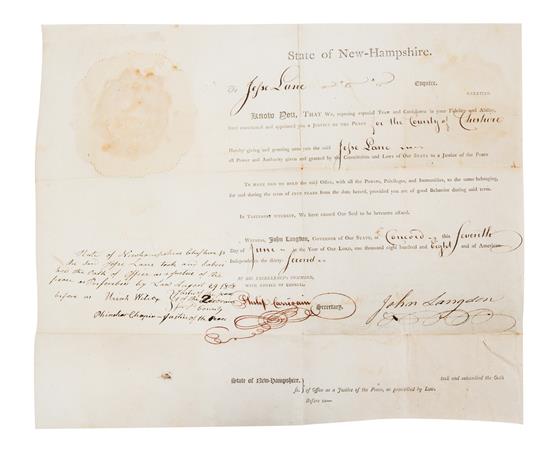 State of New-Hampshire.
To Jesse Lane Esquire.
GREETING
Know You, THAT We, reposing especial Trust and Confidence in your Fidelity and Ability,
have constituted and appointed you a JUSTICE OF THE PEACE for the County of Cheshire
Hereby giving and granting unto you the said Jesse Lane
all Power and Authority given and granted by the Constitution and Laws of Our STATE to a Justice of the Peace
TO HAVE AND TO HOLD the said Office, with all the Powers, Privileges, and Immunities, to the same belonging,
for and during the term of FIVE YEARS from the date hereof, provided you are of good Behavior during said term.
IN TESTIMONY WHEREOF, We have caused Our Seal to be hereunto affixed.
WITNESS, John Langdon, GOVERNOR OF OUR STATE, at Concord this Seventh
Day of June in the Year of OUR LORD, one thousand eight hundred and Eight and of American
Independence the thirty Second
BY HIS EXCELLENCY'S COMMAND,
WITH ADVICE OF COUNCIL.
Philip Carrigain Secretary.
John Langdon
State of Newhampshire Cheshire ss
the said Jesse Lane took and
the Oath of Office as Justice of the
peace as Prescribed by Law August 29 1808
before us
Justice of the Peace
State of New-Hampshire.
took and subscribed the Oath
ss. } of Office as a Justice of the Peace, as prescribed by Law.
Before us